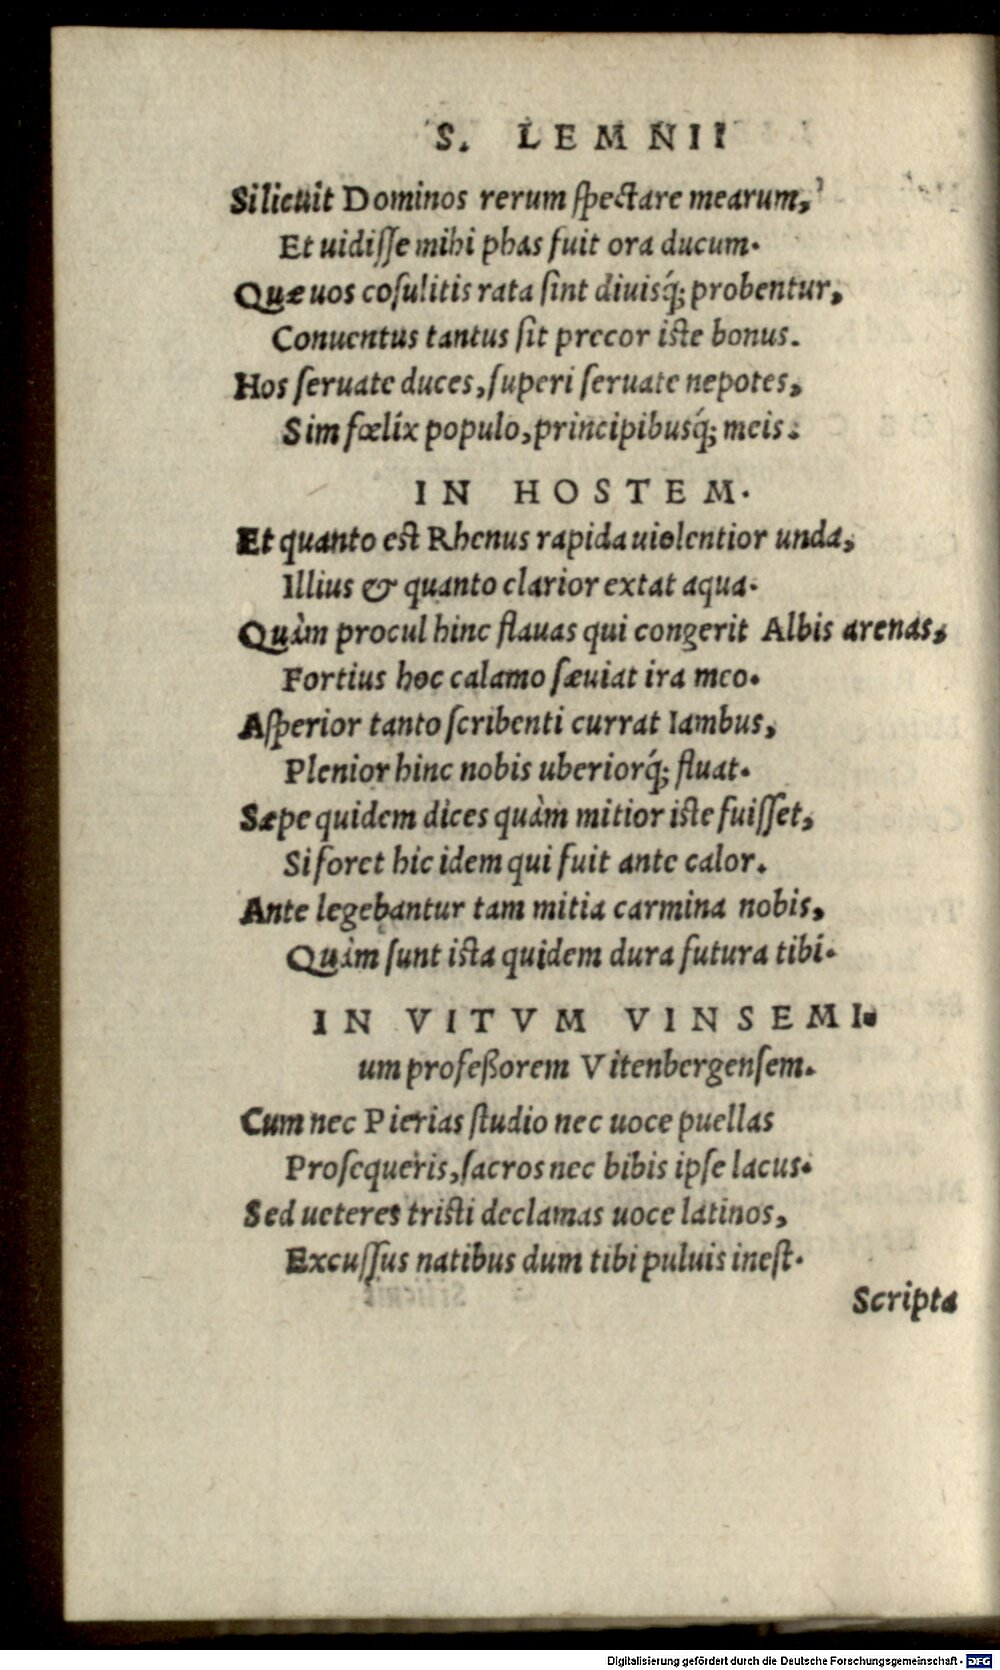 S. LEMNII
Silicuit Dominos rerum spectare mearum,
Et uidisse mihi phas fuit ora ducum.
Quæ uos cosulitis rata sint diuisq́; probentur,
Conuentus tantus sit precor iste bonus.
Hos seruate duces, superi seruate nepotes,
Sim fœlix populo, principibusq́; meis.
IN HOSTEM.
Et quanto est Rhenus rapida uiolentior unda,
Illius & quanto clarior extat aqua.
Quàm procul hinc flauas qui congerit Albis arenas,
Fortius hoc calamo sæuiat ira meo.
Asperior tanto scribenti currat Iambus,
Plenior hinc nobis uberiorq́; fluat.
Sæpe quidem dices quàm mitior iste fuisset,
Si foret hic idem qui fuit ante calor.
Ante legebantur tam mitia carmina nobis,
Quàm sunt ista quidem dura futura tibi.
IN VITVM VINSEMI-
um profeßorem Vitenbergensem.
Cum nec Pierias studio nec uoce puellas
Prosequeris, sacros nec bibis ipse lacus.
Sed ueteres tristi declamas uoce latinos,
Excussus natibus dum tibi puluis inest.
Scripta
Digitalisierung gefördert durch die Deutsche Forschungsgemeinschaft - DFG